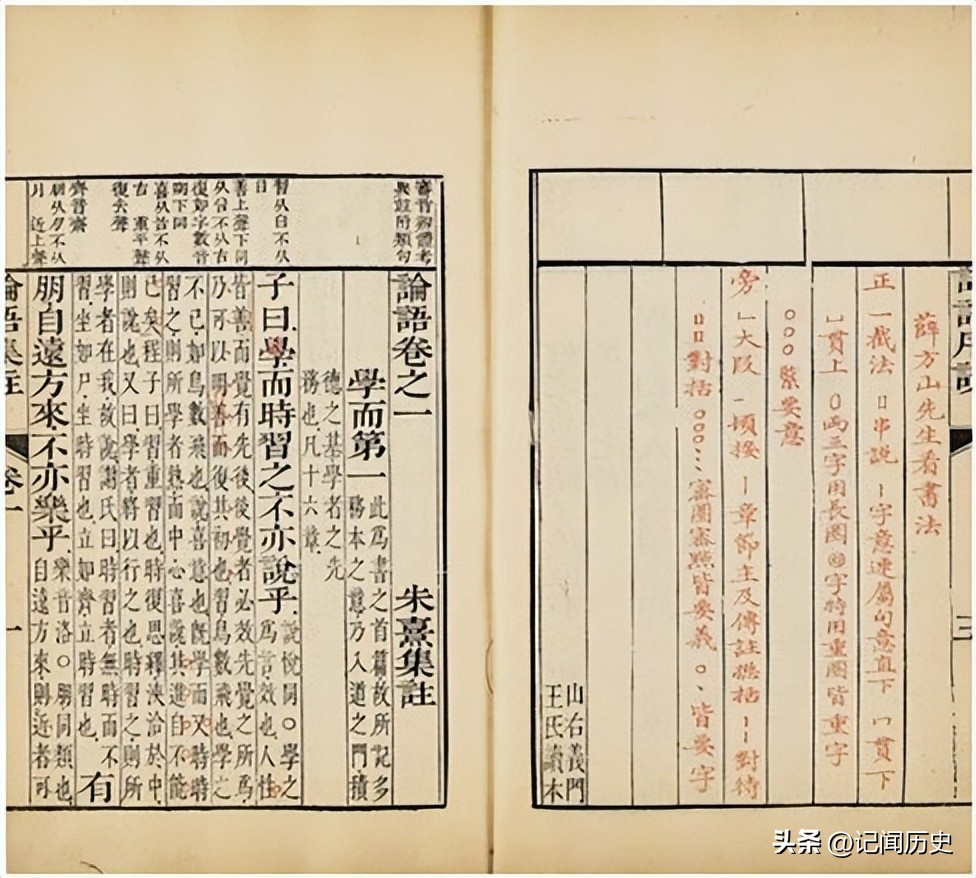 三
薛方山先生看書法
正 一截法 串說 字意連屬句意直下 貫下
貫上 兩三字用長圈 字特用重圈皆重字
○○○緊要意
旁 大段 頓接 章節主及傳註總括 對待
對括 ○○○、、、審圈審點皆要義 ○、皆要字
山右義門
王氏讀本
習从白不从
日
善上聲下同
復如字數音
朔下同
喜从吉不从
古 重平聲
齊音齋
月 近上聲
論語卷之一 朱熹集註
學而第一 此爲書之首篇故所記多
務本之意乃入道之門積
德之基學者之先
務也凡十六章
子曰學而時習之不亦說乎 說悅同○學之
爲言效也人性
皆善而覺有先後後覺者必效先覺之所爲
乃可以明善而復其初也習鳥數飛也學之
不已如鳥數飛也說喜意也旣學而又時時
習之則所學者熟而中心喜說其進自不能
已矣程子曰習重習也時復思繹浹洽於中
則說也又曰學者將以行之也時習之則所
學者在我故說謝氏曰時習者無時而不
習坐如尸坐時習也立如齊立時習也 有
朋自遠方來不亦樂乎 樂音洛○朋同類也
自遠方來則近者可
論語集註 卷一 一